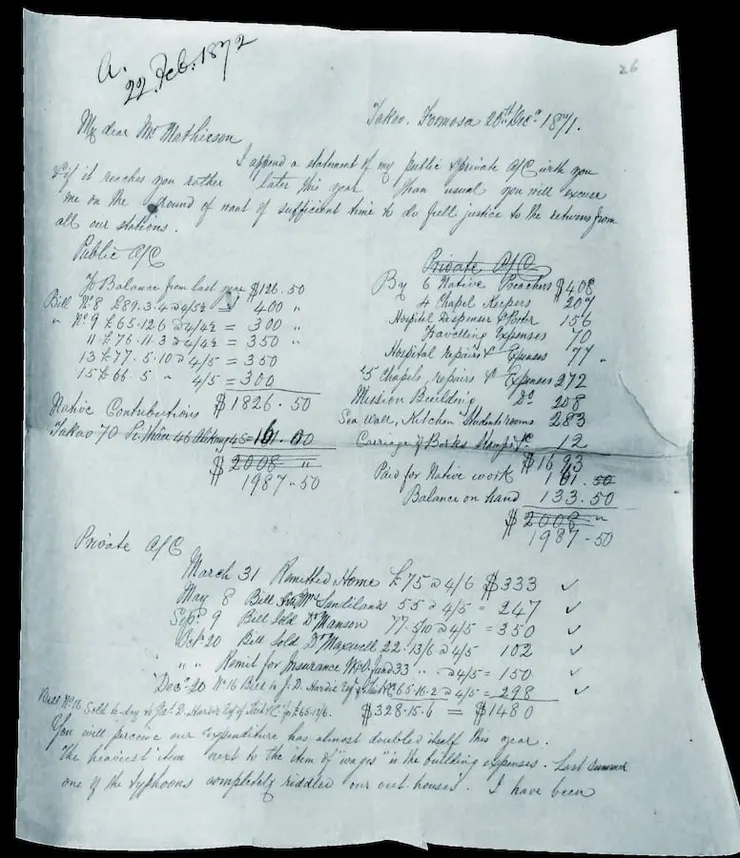 26
a.
22 Feb. 1872
Takao. Formosa 20th Decr 1871.
My dear Mr Mathieson
I append a statement of my public & private a/c with you
& if it reaches you rather later this year than usual you will excuse
me on the ground of want of sufficient time to do full justice to the returns from
all our stations.
Public a/c
To Balance from last year $126.50
Bill No 8 £89.3.4 @ 4/5½ = 400 "
" No 9 £65.12.6 @ 4/4½ = 300 "
11 £76.11.3 @ 4/4½ = 350 "
13 £77.5.10 @ 4/5 = 350
15 £66.5 " 4/5 = 300
$1826.50
Native Contributions
Takao 70 46 45 = 161.00
$2008 "
1987-50
Private a/c
By 6 Native Preachers $408
4 Chapel Keepers 207
Hospital Dispenser & Porter 156
Travelling Expenses 70
Hospital repairs & Expenses 77 "
5 Chapels, repairs & Expenses 272
Mission Building Do 208
Sea Wall, Kitchen Students rooms 283
Carriage of Books Stamps &c 12
$1693
Paid for Native work 161.50
Balance on hand 133.50
$2008 "
1987-50
Private a/c
March 31 Remitted Home £75 @ 4/6 $333 ✓
May 8 Bill Mr Sandilands 55 @ 4/5 = 247 ✓
Sepr 9 Bill Sold Dr Manson 77.5/10 @ 4/5 = 350 ✓
Octr 20 Bill Sold Dr Maxwell 22.13/6 @ 4/5 102 ✓
" " Remit for Insurance 33 " @ 4/5 = 150 ✓
Decr 20 No 16 Bill to J. D. Hardie Esq £65.16.2 @ 4/5 = 298 ✓
$328.15.6 = $1480
Bill No 16 Sold to-day to Jas. D. Hardie Esq of &Co for £65.17/6.
You will perceive our Expenditure has almost doubled itself this year.
The heaviest item next to the item of "wages" is the building expenses. Last summer
one of the typhoons completely riddled our out-houses. I have been